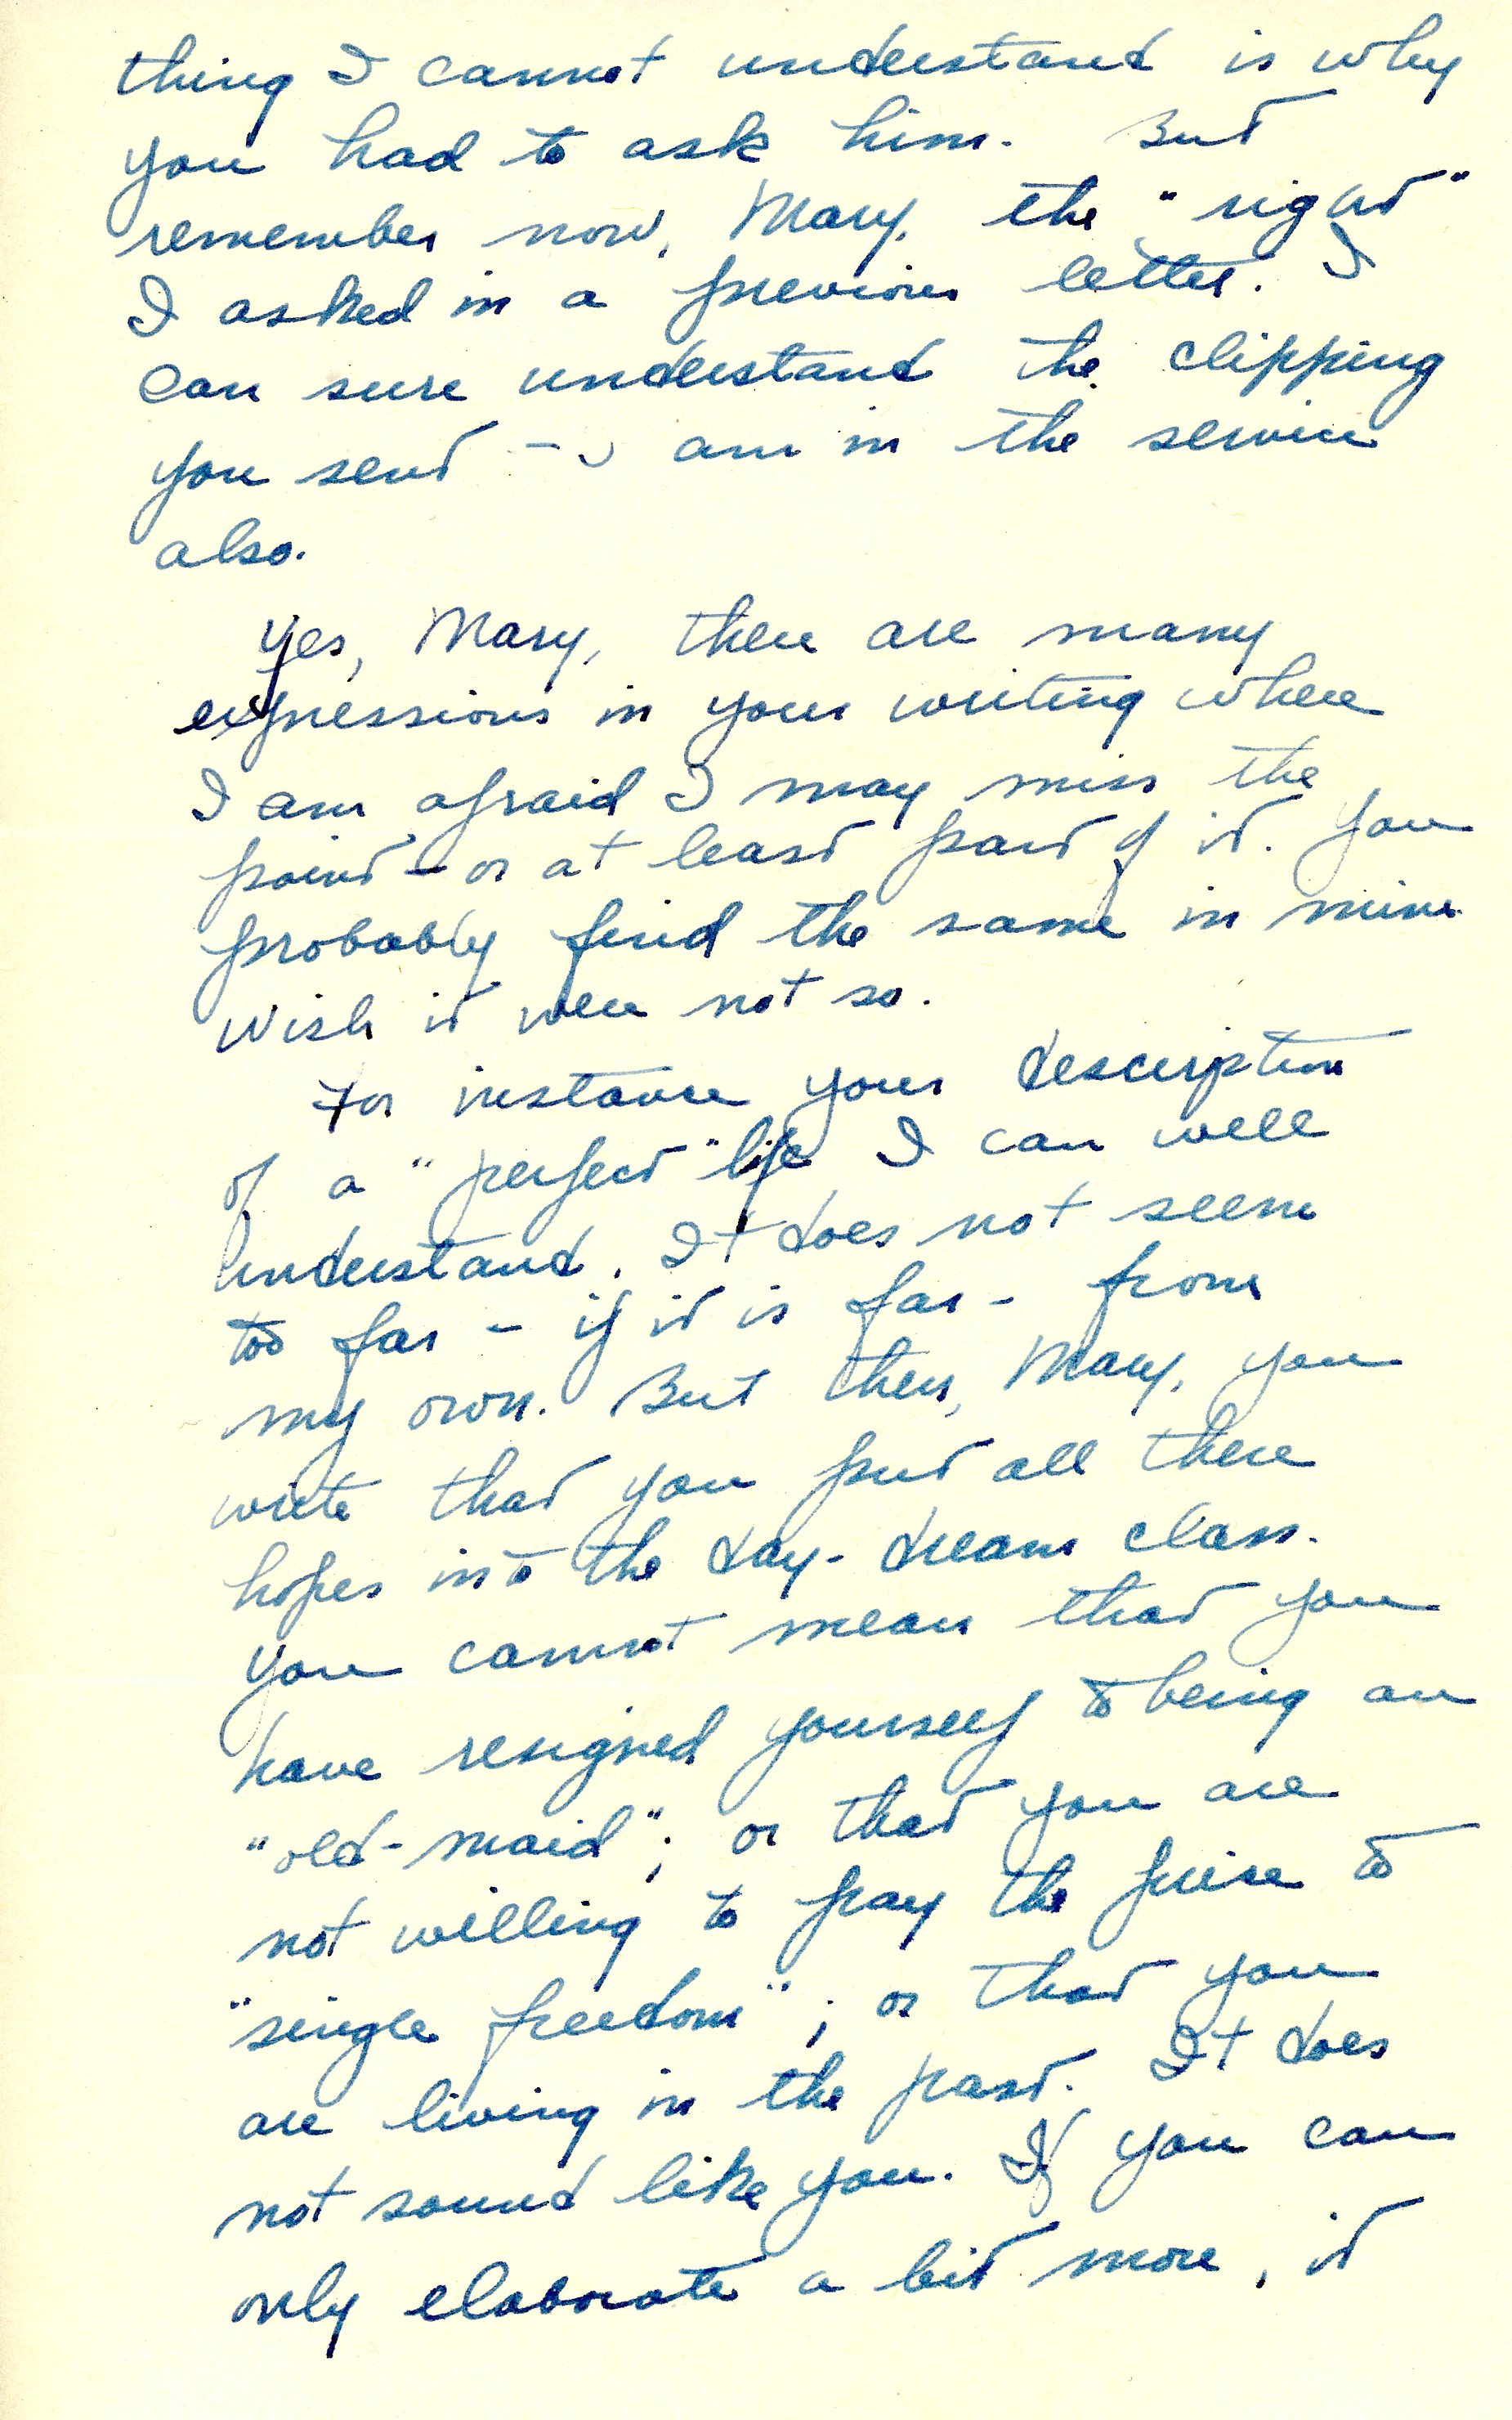 thing I cannot understand is why
you had to ask him. But
remember now, Mary, the "right"
I asked in a previous letter. I
can sure understand the clipping
you send - I am in the service
also.
Yes, Mary, there are many
expressions in your writing where
I am afraid I may miss the
point - or at least part of it. You
probably find the same in mine.
Wish it were not so.
For instance your description
of a "perfect" life I can well
understand. It does not seem
too far - if it is far - from
my own. But then, Mary, you
write that you put all these
hopes into the day-dream class.
You cannot mean that you
have resigned yourself to being an
"old-maid"; or that you are
not willing to pay the price to
"single freedom"; or that you
are living in the past. It does
not sound like you. If you can
only elaborate a bit more, it